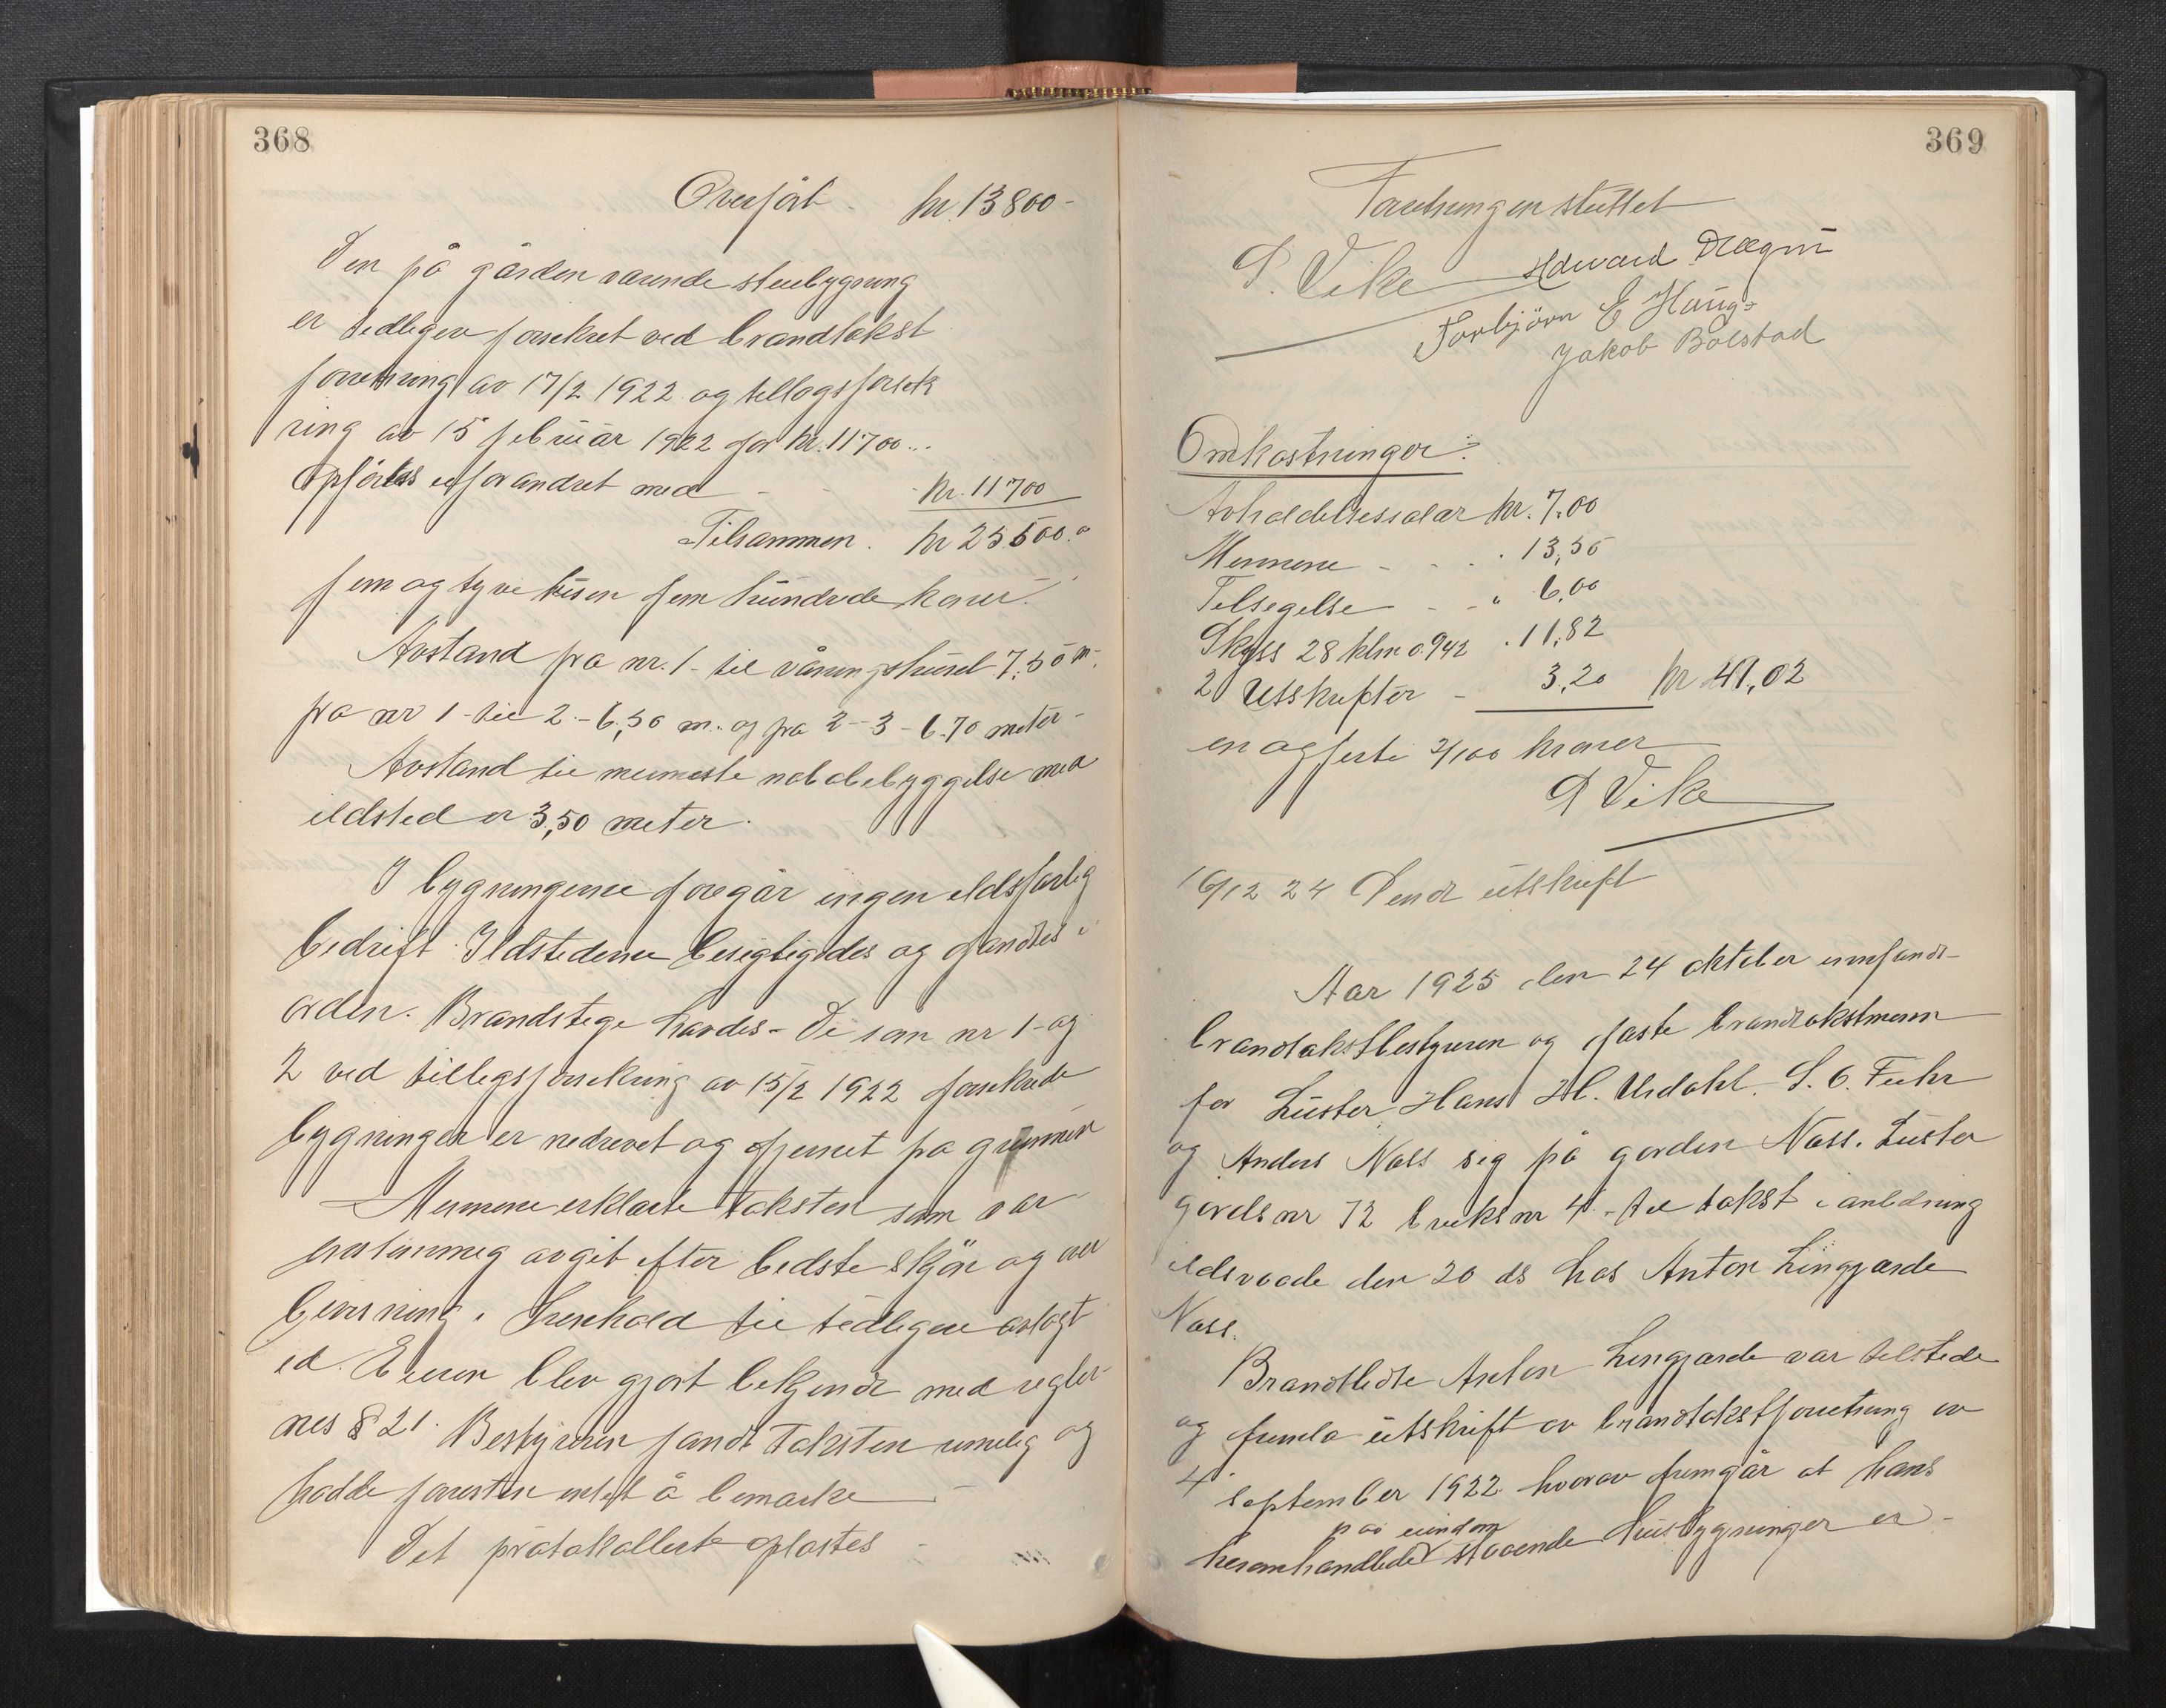 368
Overført - kr. 13800-
Den på gården værende stuebygning
er tidligere forsikret ved brandtakst
forretning av 17/2 1922 og tillægsforsik
ring av 15 februar 1922 for kr. 11700...
Opføres uforandret med - - - kr. 11700
Tilsammen. kr 25500.
fem og tyve tusen fem hundrede kroner.
Avstand fra nr. 1 - til våningshuset 7,50 m.
fra nr 1 - til 2 - 6,50 m. og fra 2 - 3 - 6.70 meter -
Avstand til nærmeste nabobebyggelse med
ildsted er 3,50 meter.
I bygningene foregår ingen ildsfarlig
bedrift. Ildstedene besigtigedes og fandtes i
orden. Brandstige havdes - De som nr 1 - og
2 ved tillegsforsikring av 15/2 1922 forsikrede
bygninger er nedrevet og fjernet fra grunnen
Mennene erklærte taksten som var
enstemmig avgit efter bedste skjøn og over
bevisning i henhold til tidligere avlagt
ed. Eieren blev gjort bekjendt med regler-
nes § 21. Bestyreren fandt taksten rimelig og
hadde forresten intet å bemærke
Det protokollerte oplæstes -
369
Forretningen sluttet
P. Vike Edward Drægni
Torbjörn E Haugs
Jakob Bolstad
Omkostninger:
Avholdelsessalær kr. 7.00
Mennene - - - . 13,50
Tilsigelse - - " 6,00
Skyss 28 klm a 942 . 11,82
2 Utskrifter - 3,20 kr 41,02
en og førti 2/100 kroner
P Vike
16/12 24 Sendt utskrift
Aar 1925 den 24 oktober innfandt
brandtakstbestyreren og faste brandtakstmenn
for Luster Hans H. Urdahl. S. O. Fuhr
og Anders Næss sig på gården Næss. Luster
gårds nr 72 bruks nr 4 - til takst i anledning
ildsvaade den 20 ds hos Anton Lingjærde
Næss.
Brandlidte Anton Lingjærde var tilstede
og fremla utskrift av brandtakstforretning av
4 september 1922 hvorav fremgår at hans
paa eiendom
heromhandlede staaende husbygninger er -